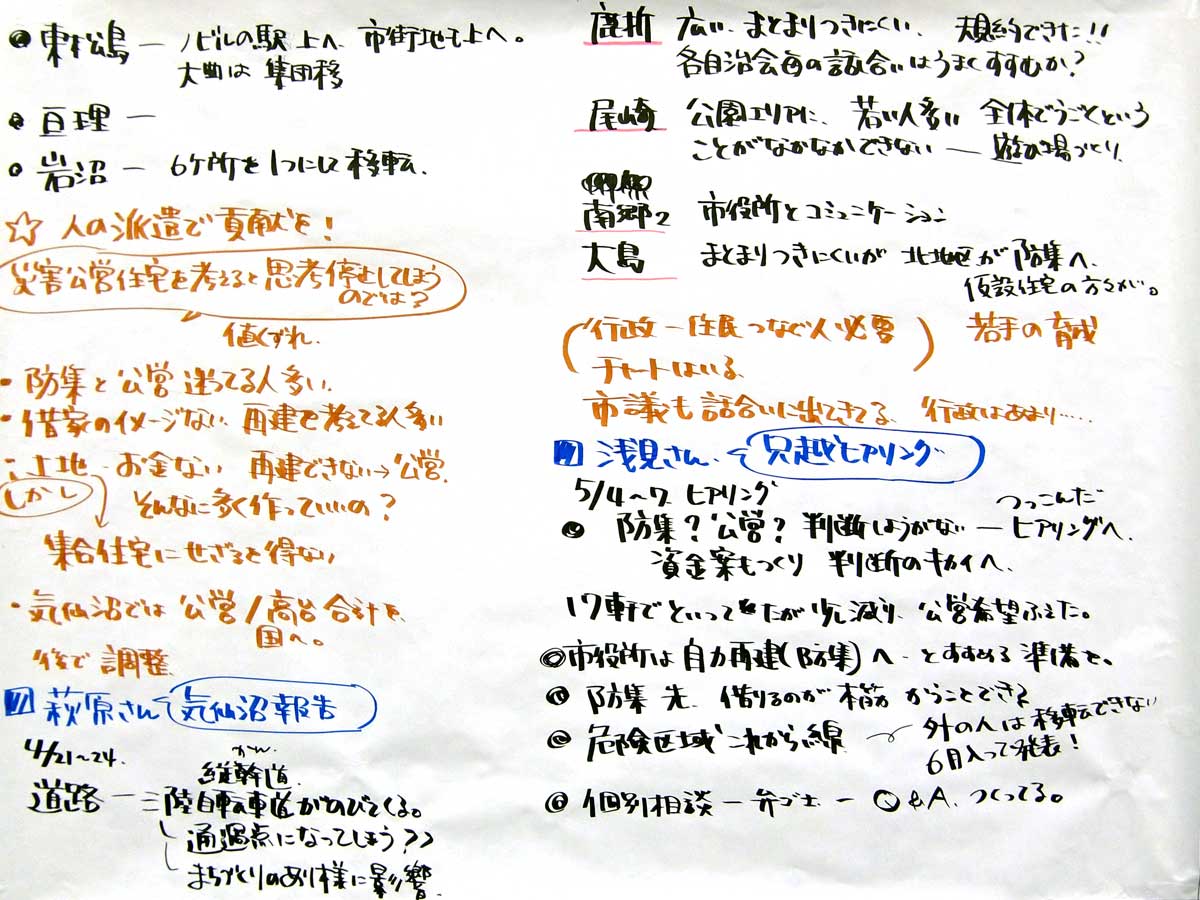 ● 東松島 ー ノビルの駅 上へ、市街地も上へ。
大曲は 集団移
● 亘理 ー
● 岩沼 ー 6ケ所を1つにして移転、
☆ 人の派遣で貢献を!
災害公営住宅を考えると思考停止してしまう
のでは?
値くずれ.
・防集と公営 迷ってる人多い.
・借家のイメージない 再建で考えてる人多い
・土地 お金ない 再建できない→公営.
しかし そんなに多く作っていいの?
集合住宅にせざるを得ない
・気仙沼では 公営/高台 合計を、
国へ。
後で 調整
萩原さん 気仙沼報告
4/21~24.
かん.
縦幹道.
道路 ー 三陸自転車道がのびてくる。
通過点になってしまう??
まちづくりのあり様に影響.
鹿折 広い、まとまりつきにくい、 規約できた!!
各自治会毎の話合いはうまくすすむか?
尾崎 公園エリアに、若い人多い 全体でうごくという
ことがなかなかできない ー 遊び場づくり.
南郷2 市役所とコミュニケーション
大島 まとまりつきにくいが 北地区が防集へ、
仮設住宅の方々が。
(行政ー住民つなぐ人必要 若手の育成
チャートはいる、)
市議も話合いに出てきてる、行政はあまり……
浅見さん、 只越ヒアリング
5/4~7 ヒアリング つっこんだ
● 防集?公営?判断しようがない ー ヒアリングへ、
資金案もつくり 判断のキカイへ、
17軒でといってたが少し減り、公営希望ふえた。
◎市役所は 自力再建(防集)へ とすすめる 準備を。
● 防集 先、借りるのが本筋 からことできる
● 危険区域 これから線 外の人は移転できない
6月入って発表!
● 個別相談 ー 弁ゴ士 ー Q&A、つくってる。